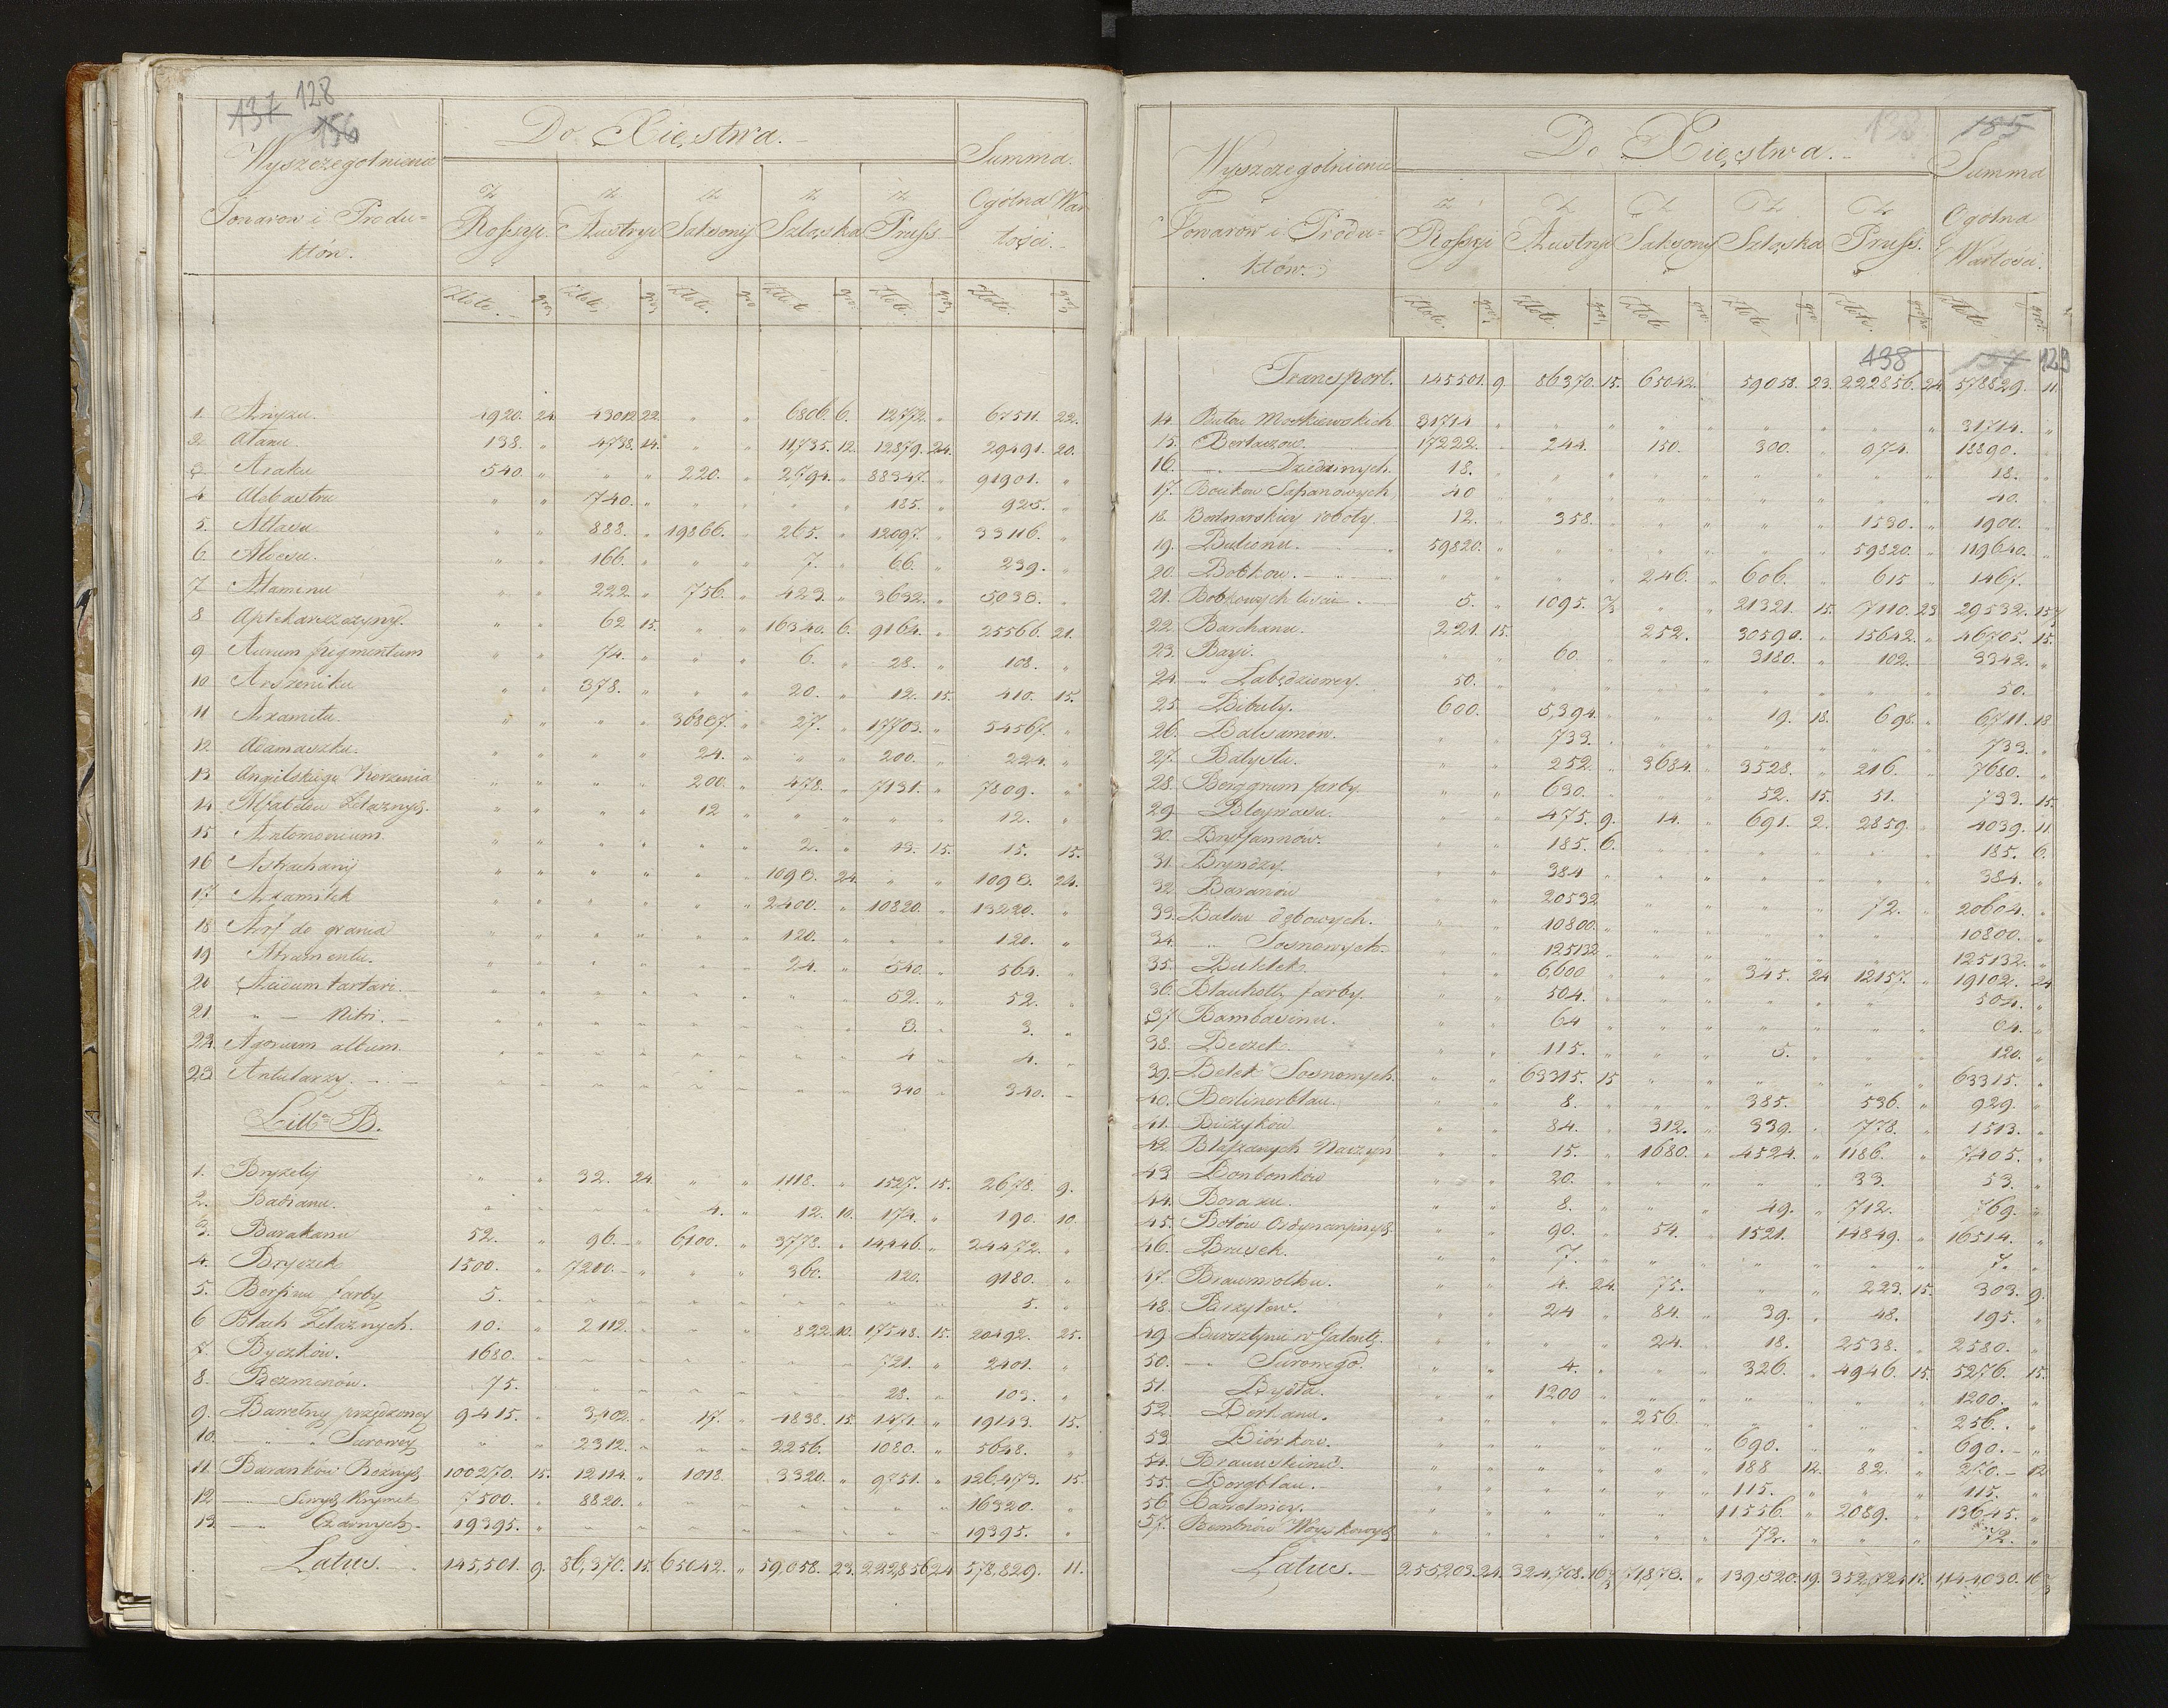 137 128
156
Wyszczegolnienie
Towarow i Produ=
któw.
Do Xięstwa.
Summa
Ogólna War
tości.
z Rossyi. z Austryi z Saksonij z Szląska z Pruss
Złote. gro. Złote. gro. Złote. gro. Złote gro. Złote. gro. Złote. gro.
1. Anyzu. 1920. 24. 43012 22 " " 6806. 6. 12772. " 67511. 22.
2. Ałunu. 138. " 4738. 14. " " 11,735. 12. 12879. 24. 29491. 20.
3. Araku 540. " " " 220. " 2794. " 88347. " 91901. "
4. Alabastru " " 740. " " " " " 185. " 925. "
5. Atlasu " " 888. " 19866. " 265. " 12097. " 33116. "
6. Aloesu. " " 166. " " " 7. " 66. " 239. "
7. Atamenu " " 222. " 756. " 423. " 3632. " 5,033. "
8 Aptekarszczyzny. " " 62 15. " " 16340. 6. 9164. " 25566. 21.
9 Aurum pigmentum " " 74. " " " 6. " 28. " 108. "
10 Arszeniku " " 378. " " " 20. " 12. 15. 410. 15.
11 Axamitu. " " " " 36837. " 27. " 17703. " 54567. "
12. Adamaszku. " " " " 24. " " " 200. " 224. "
13 Angielskiego Korzenia " " " " 200. " 478. " 7131. " 7809. "
14 Alfabetów Żelaznych. " " " " 12 " " " " " 12. "
15 Antomonium. " " " " " " 2. " 13. 15. 15. 15.
16 Astrachanij " " " " " " 1098. 24. " " 1098. 24.
17 Axamitek " " " " " " 2400. " 10820. " 13220. "
18 Arf do grania " " " " " " 120. " " " 120. "
19 Atramentu. " " " " " " 24. " 540. " 564. "
20 tartari. " " " " " " " " 52. " 52. "
21. " — Nitri. " " " " " " " " 3. " 3. "
22. album. " " " " " " " " 4 " 4. "
23 Antularzy. " " " " " " " " 340 " 340. "
Litt: B.
1. Bryzelij " " 32. 24. " " 1118. " 1527. 15. 2678. 9.
2. Babianu. " " " " 4. " 12. 10. 174. " 190. 10.
3. Barakanu 52. " 96. " 6,100. " 3,778. " 14,446. " 24472. "
4. Bryczek 1500. " 7200. " " " 360. 120. 9180. "
5. farby 5. " " " " " " " " " 5. "
6 Blach Żelaznych. 10. " 2112. " " " 822. 10. 17548. 15. 20492. 25.
7. Byczków. 1680. " " " " " " " 721. " 2401. "
8. Bezmenów. 75. " " " " " " 28. " 103. "
9. Bawełny przędzoney 9415. " 3,402. " 17. " 4838. 15. 1471. " 19143. 15.
10. — " Surowey " " 2312. " " " 2256. 1080. " 5648. "
11. Baranków Różnych 100270. 15. 12114. " 1018. 3320. " 9751. " 126,473. 15.
12 — Siwych Krymek 7500. " 8820. " " " " " " " 16320. "
13. — Czarnych 19395. " " " " " " " " " 19395. "
Latus. 145,501. 9. 86,370. 15. 65042. " 59,058. 23. 222,856 24 578,829. 11.
138 185
Wyszczegolnienie
Towarów i Produ=
któw.
Do Xięstwa.
Summa
Ogolna
Wartosci.
z Rossyi z Austryi z Saksonij z Szląska z Pruss.
Złote. gro. Złote. gro. Złote gro. Złote gro. Złote. gro. Złote gro.
138 157 129
Transport. 145501. 9. 86370. 15. 65042. 59058. 23. 222856. 24 578829. 11
14. Butów Moskiewskich 31714 " " " " " " " " " 31714. "
15. Bertuzow. 17222. " 244. 150. 300. 974. 18890. "
16. " — Dziedzinnych. 18. " " " " " " " " " 18. "
17. Bouków Safianowych 40 " " " " " " " " " 40. "
18. Bednarskiey roboty. 12. " 358. " " " " " 1530. " 1900. "
19. Bulionu. 59820. " " " " " " " 59820. " 119640. "
20. Bobkow. " " " " 246. " 606. " 615 " 1467. "
21. Bobkowych lisci. 5. " 1095. 7/3 " " 21321. 15. 7110. 23 29532. 15
22. Barchanu. 221. 15. 252. 30590. " 15642. " 46705. 15.
23. Bayi. " " 60 " " " 3180. " 102. 3342. "
24. " Łabędziowey. 50. " " " " " " " " " 50. "
25. Bibuły. 600. 5,394. " " " 19. 18. 698. " 6,711. 18
26. Balsamow. " " 733. " " " " " " " 733. "
27. Batystu. " " 252. " 3684. " 3528. " 216. " 7680. "
28. Berggrum farby " " 630. " " " 52. 15. 51. 733. 15.
29. Bleywasu. " " 475. 9. 14. " 691. 2. 2859. 4039. 11.
30. " " 185. 6. " " " " " " 185. 6.
31. Bryndzy. " " 384 " " " " " " " 384. "
32. Baranow " " 20532 " " " " " 72. " 20604. "
33. Balow dębowych. " " 10800. " " " " " " " 10800. "
34. " Sosnowych. " " 125132. " " " " " " " 125132. "
35. Butelek. " " 6,600 " " " 345. 24 12157. " 19102. 24
36. Blauholtz farby. " " 504. " " " " " " " 504. "
37. Bambasinu. " " 64 " " " " " " " 64. "
38. Beczek. " " 115. " " " 5. " " " 120. "
39. Belek Sosnowych. " " 63315. 15 " " " " " " 63315. "
40. Berlinerblau. " " 8. " " " 385. 536. " 929. "
41. Biczyków " " 84. " 312. " 339. " 778. " 1513. "
42. Blaszanych Naczyń " " 15. " 1680. " 4524. " 1186. " 7,405. "
43 Bonbonków " " 20. " " " " " 33. " 53. "
44. Boraxu. " " 8. " " " 49. " 712. " 769. "
45. Botów Ordynaryinych " " 90. " 54. " 1521. 14849. " 16514. "
46. Brusek. " " 7. " " " " " " " 7. "
47. Braunrothu. " " 4. 24. 75. " " " 223. 15. 303. 9.
48. " " 24 " 84. " 39. " 48. " 195. "
49. Bursztynu w Galent. " " " " 24. " 18. 2538. " 2580. "
50. — Surowego. " " 4. " " " 326. " 4946. 15. 5276. 15.
51. Bydła. " " 1200 " " " " " " " 1200. "
52. Berkanu. " " " " 256. " " " " " 256. "
53. Biórkow. " " " " " " 690. " " " 690. "
54. " " " " " " 188 12. 82. " 270. 12
55. Bergblau. " " " " " " 115. " " " 115. "
56. Bawełnicy. " " " " " " 11556. " 2089. " 13645. "
57. Bembnów Woyskowych " " " " " " 72. " " " 72. "
Latus. 255,203. 24. 324,708. 16 71,873. " 139,520. 19. 352,724 17. 1,144,030. 16